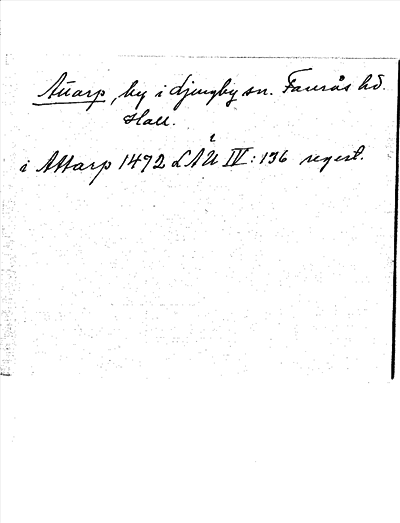 Attarp, by i Ljungby sn. Faurås hd.
Hall.
i Attarp 1472 LÄU IV: 136 regest.